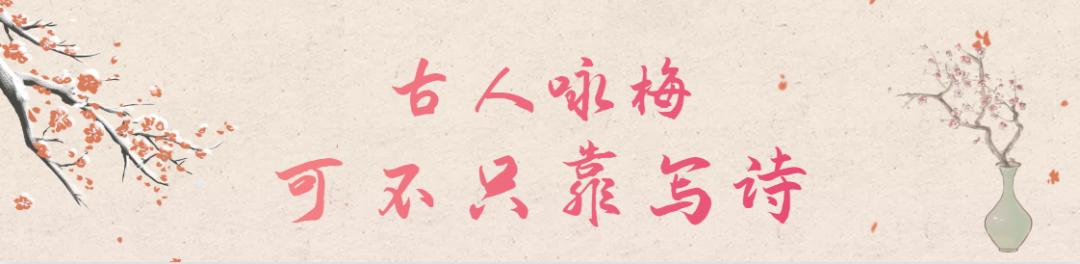 古人咏梅
可不只靠写诗